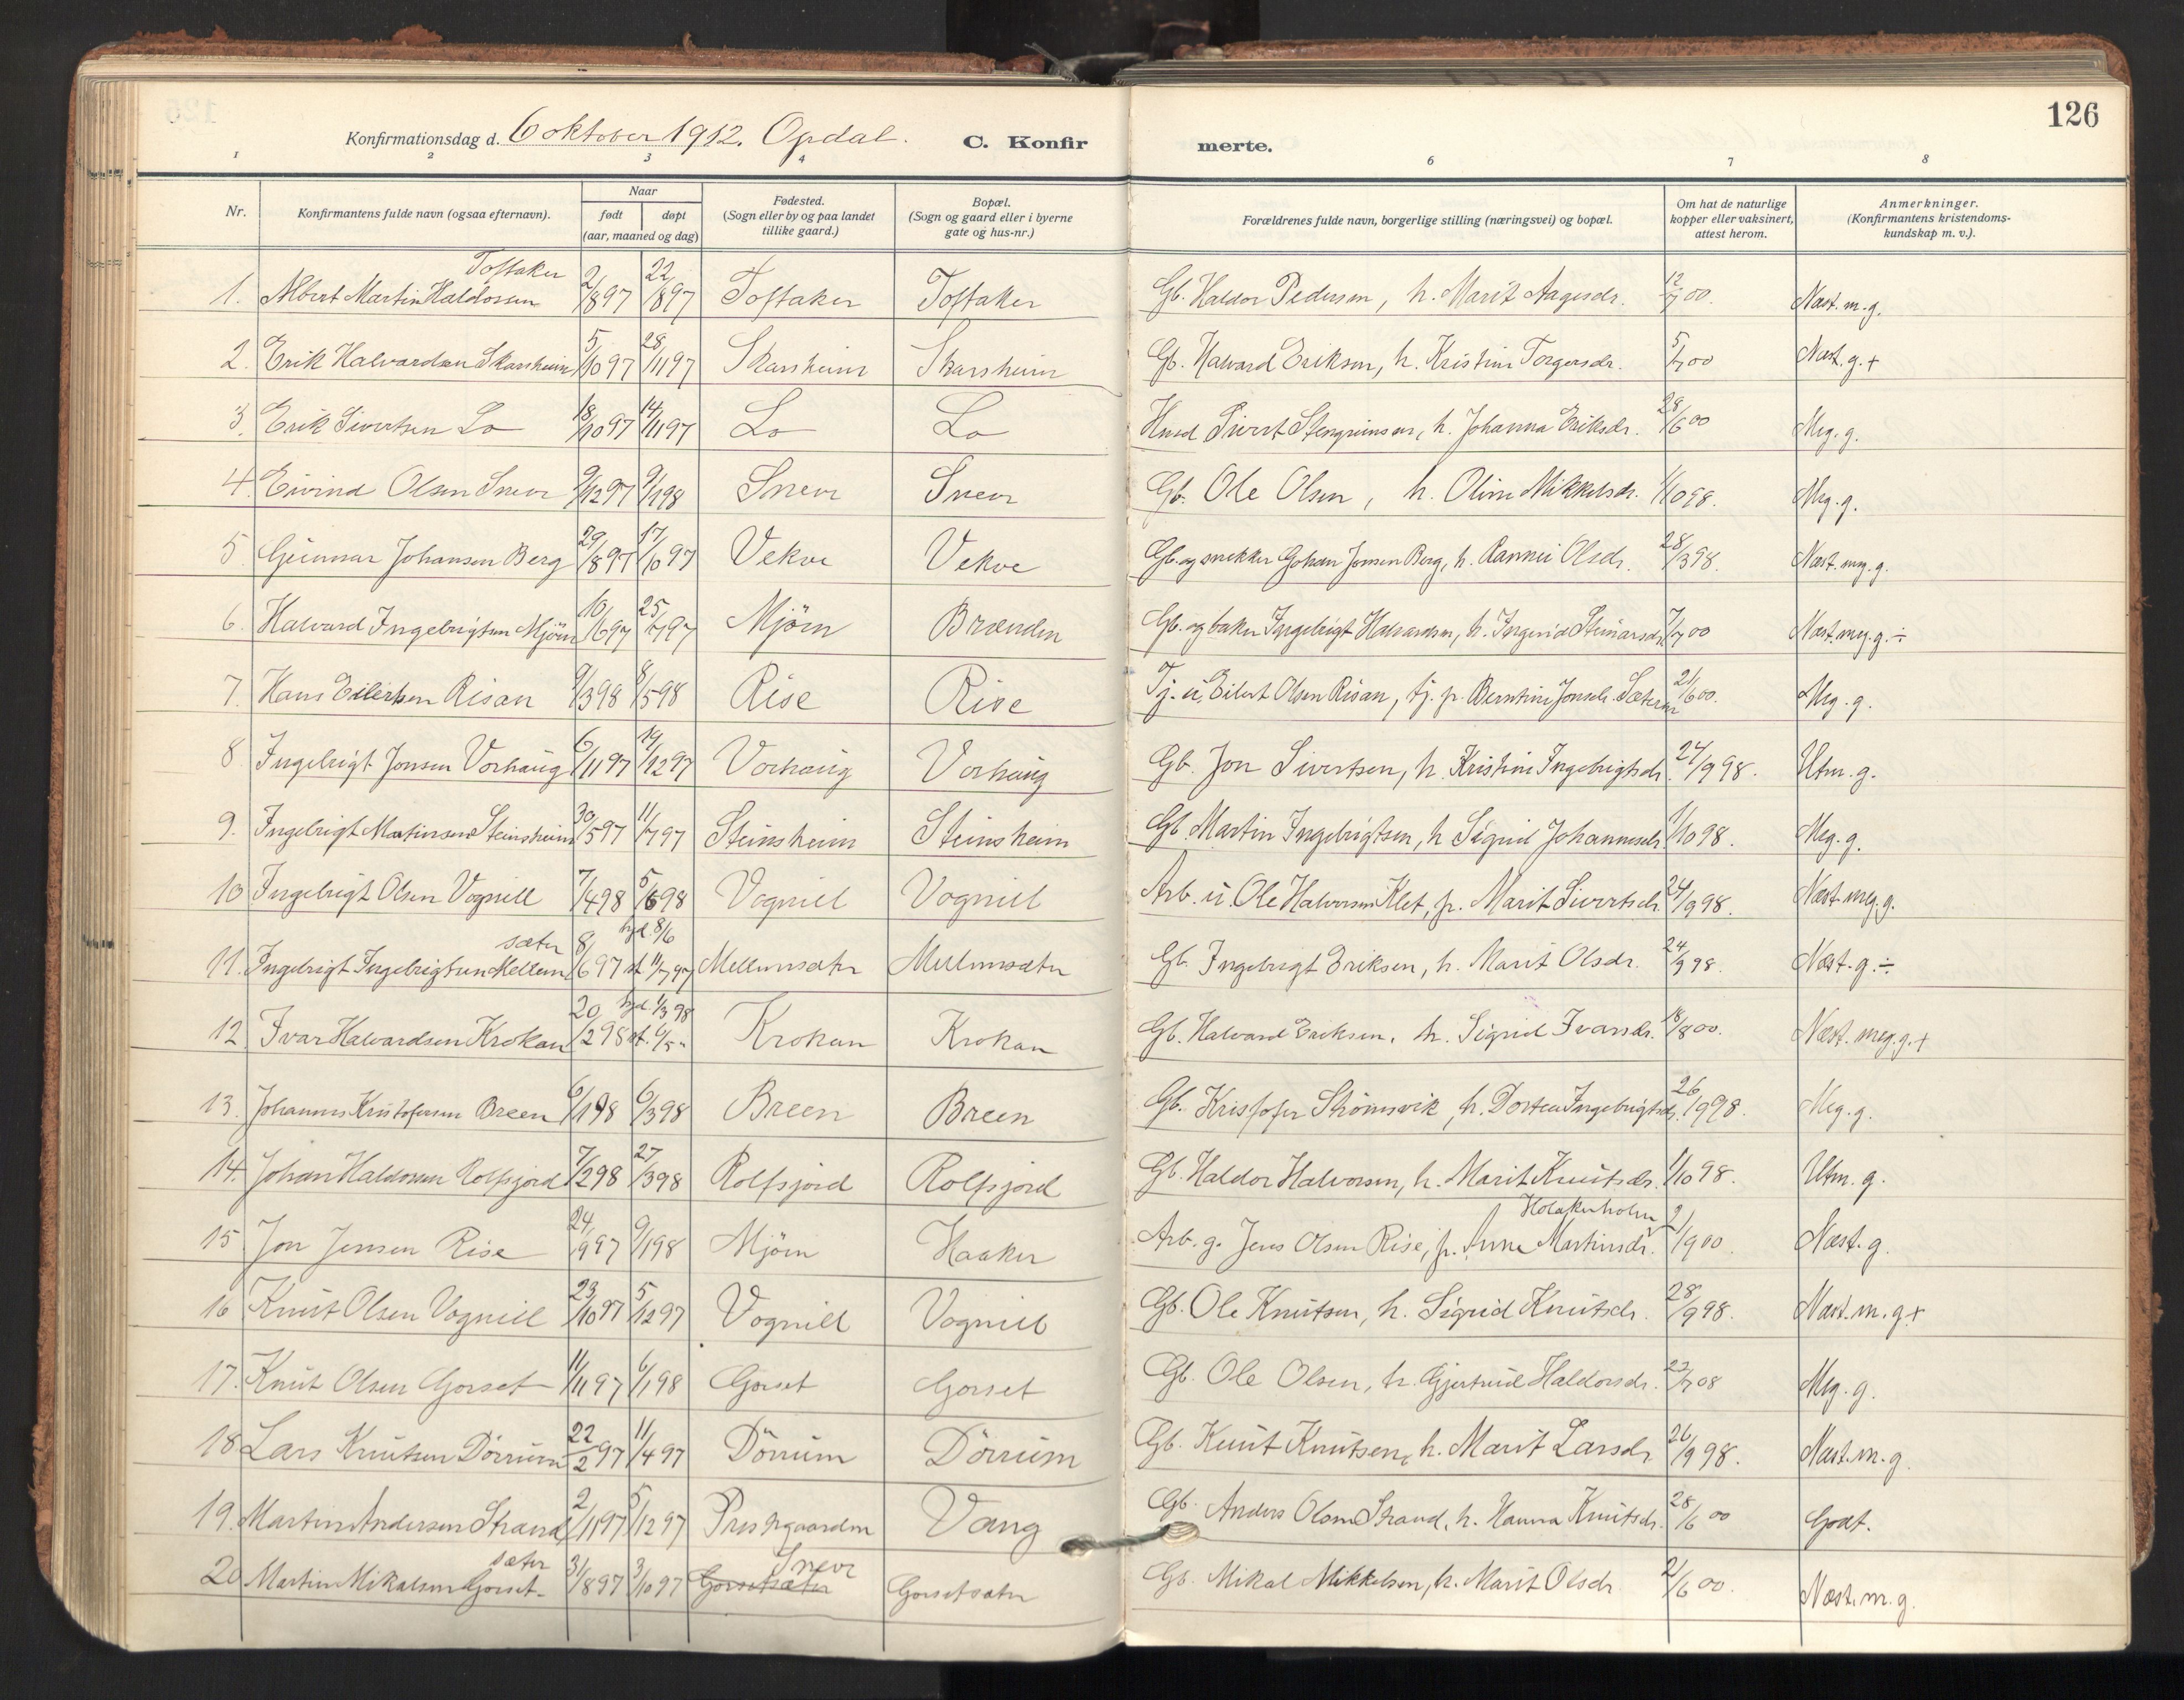 126
Konfirmationsdag d. 6 oktober 1912. Opdal. C. Konfir merte.
1 2 3 4 6 7 8
Nr. Konfirmantens fulde navn (ogsaa efternavn). Naar født døpt (aar, maaned og dag) Fødested. (Sogn eller by og paa landet tillike gaard.) Bopæl. (Sogn og gaard eller i byerne gate og hus-nr.) Forældrenes fulde navn, borgerlige stilling (næringsvei) og bopæl. Om hat de naturlige kopper eller vaksinert, attest herom. Anmerkninger. (Konfirmantens kristendoms- kundskap m. v.).
Toftaker
1. Albert Martin Haldossen 2/8 97 22/8 97 Toftaker Toftaker Gb. Haldor Pedersen, h. Marit Aagesdr. 12/7 00. Næst. m. g.
2. Erik Halvardsen Skarsheim 5/10 97 28/11 97 Skarsheim Skarsheim Gb. Halvard Eriksen, h. Kristine Torgersdr. 5/7 00 Næst. g. +
3. Erik Sivertsen Lo 18/10 97 14/11 97 Lo Lo Husd Sivert Stengrimsen, h. Johanna Eriksdr. 28/6 00 Meg. g.
4. Eivind Olsen Snevr 9/12 97 9/1 98 Snevr Snevr Gb. Ole Olsen, h. Oline Mikkelsdr. 1/10 98. Meg. g.
5. Gunnar Johansen Berg 29/8 97 17/10 97 Vekve Vekve Gb. og snekker Johan Jonsen Berg, h. Rannei Olsdr. 28/3 98. Næst. meg. g.
6. Halvard Ingebrigtsen Mjöen 10/6 97 25/7 97 Mjöen Brænden Gb. og baker Ingebrigt Halvardsen, h. Ingerid Steinarsdr. 7/7 00 Næst. meg. g. ÷
7. Hans Eilertsen Risan 9/3 98 8/5 98 Rise Rise Tj. u. Eilert Olsen Risan, tj. p. Berntine Jonsdr. Sæteren 21/6 00. Meg. g.
8. Ingebrigt Jonsen Vorhaug 6/11 97 19/12 97 Vorhaug Vorhaug Gb. Jon Sivertsen, h. Kristine Ingebrigtsdr. 27/9 98. Utm. g.
9. Ingebrigt Martinsen Steinsheim 30/5 97 11/7 97 Steinsheim Steinsheim Gb. Martin Ingebrigtsen, h Sigrid Johannesdr. 1/10 98. Meg. g.
10 Ingebrigt Olsen Vognill 7/4 98 5/6 98 Vognill Vognill Arb. u. Ole Halvorsen Klet, p. Marit Sivertsdr. 24/9 98. Næst meg. g.
sæter hjd. 8/6
11. Ingebrigt Ingebrigtsen Mellem 8/6 97 st. 11/7 97 Mellemsæter Mellemsæter Gb. Ingebrigt Eriksen, h. Marit Olsdr. 24/9 98. Næst. g. ÷
hjd. 1/3 98
12 Ivar Halvardsen Krokan 20/2 98 st. Krokan Krokan Gb. Halvard Eriksen, h. Sigrid Ivarsdr. 18/8 00. Næst. meg. g. +
13. Johannes Kristofersen Breen 6/1 98 6/3 98 Breen Breen Gb. Kristofer Strömsvik, h. Dortea Ingebrigtsdr. 26/9 98. Meg. g.
14. Johan Haldossen Rolfsjord 7/2 98 27/3 98 Rolfsjord Rolfsjord Gb. Haldor Halvorsen, h. Marit Knutsdr. 1/10 98. Utm. g.
Holakerholm
15. Jon Jensen Rise 24/9 97 9/1 98 Mjöen Haaker Arb. g. Jens Olsen Rise, p. Anne Martinsdr. 2/9 00. Næst. g.
16 Knut Olsen Vognill 23/10 97 5/12 97 Vognill Vognill Gb. Ole Knutsen, h. Sigrid Knutsdr. 28/9 98. Næst. m. g. +
17. Knut Olsen Gorset 11/11 97 6/1 98 Gorset Gorset Gb. Ole Olsen, h. Gjertrud Haldorsdr. 23/7 08 Meg. g.
18. Lars Knutsen Dörrum 22/2 97 11/4 97 Dörrum Dörrum Gb. Knut Knutsen, h. Marit Larsdr 26/9 98. Næst. m. g
19. Martin Andersen Strand 2/11 97 5/12 97 Prestgaarden Vang Gb. Anders Olsen Strand, h. Hanna Knutsdr. 28/6 00 Godt.
sæter Snevr
20 Martin Mikalsen Gorset- 31/8 97 3/10 97 Gorsetsæter Gorsetsæter Gb. Mikal Mikkelsen, h. Marit Olsdr 21/6 00. Næst. m. g.